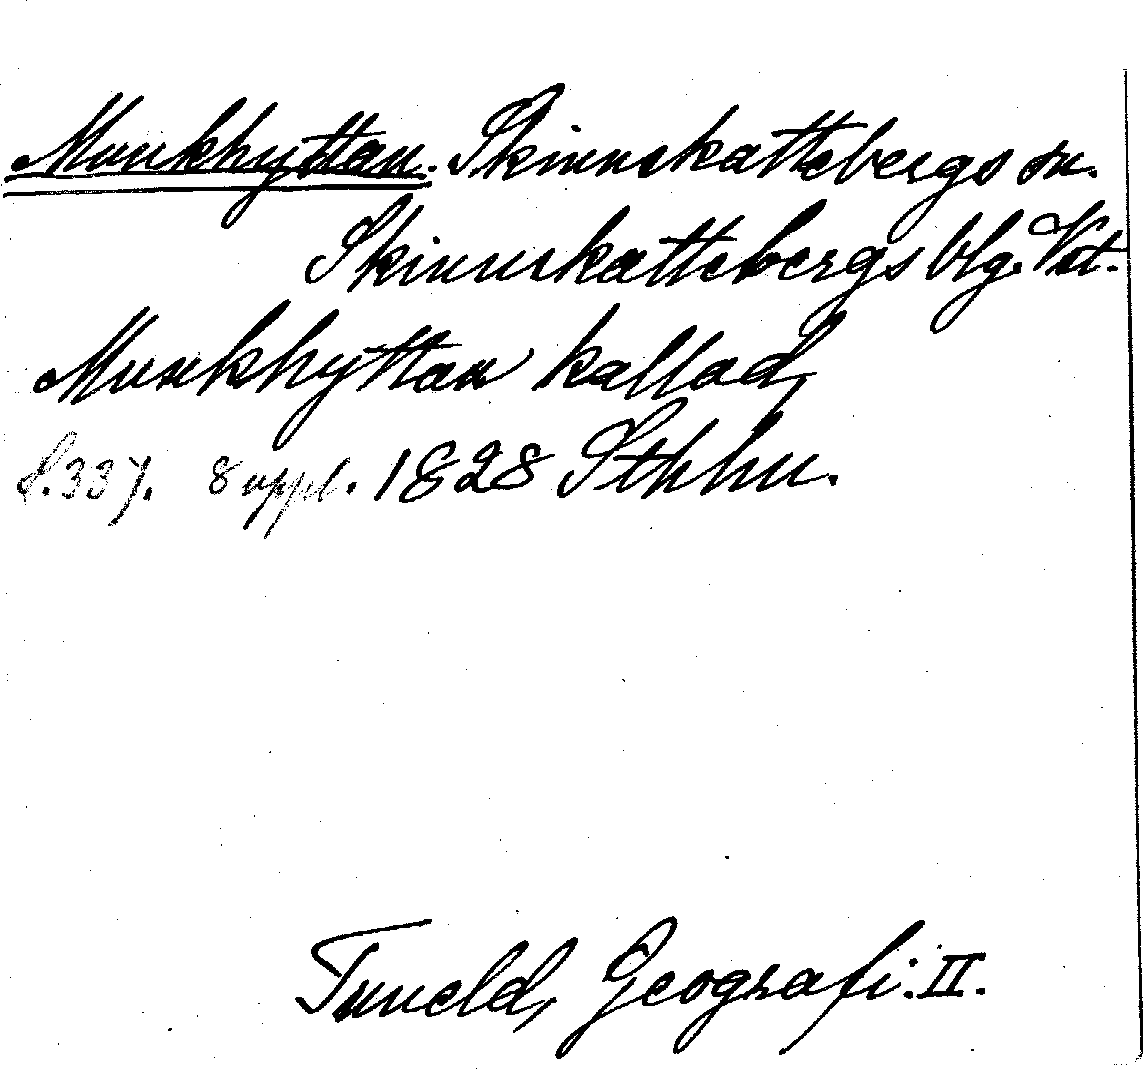 Munkhyttan. Skinnskattebergs sn.
Skinnskattebergs blg. Vst.
Munkhyttan kallad,
s. 337. 8 uppl. 1828 Sthhm.
Tuneld, Geografi. II.